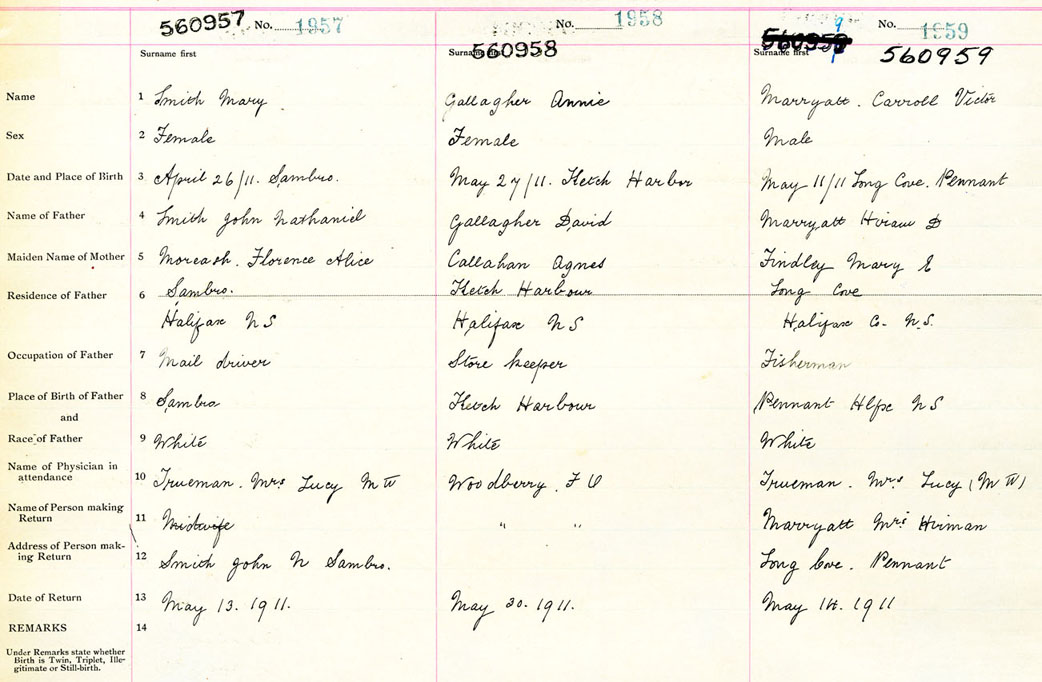 560957 No. 1957 No. 1958 No. 1959
560958 560959
Surname first Surname first Surname first
Name 1 Smith Mary Gallagher Annie Marryatt. Carroll Victor
Sex 2 Female Female Male
Date and Place of Birth 3 April 26/11. Sambro. May 27/11. Ketch Harbor May 11/11 Long Cove. Pennant
Name of Father 4 Smith John Nathaniel Gallagher David Marryatt Hiram D
Maiden Name of Mother 5 Moreash. Florence Alice Callahan Agnes Findley Mary E
Residence of Father 6 Sambro. Ketch Harbour Long Cove
Halifax NS Halifax NS Halifax Co. N.S.
Occupation of Father 7 Mail driver Store keeper Fisherman
Place of Birth of Father 8 Sambro Ketch Harbour Pennant Hlfx NS
and
Race of Father 9 White White White
Name of Physician in
attendance 10 Trueman. Mrs Lucy M W Woodberry. F Trueman. Mrs Lucy (M W)
Name of Person making
Return 11 Midwife " " Marryatt Mrs Hirman
Address of Person mak-
ing Return 12 Smith John N Sambro. Long Cove. Pennant
Date of Return 13 May 13. 1911. May 30. 1911. May 14. 1911
REMARKS 14
Under Remarks state whether
Birth is Twin, Triplet, Ille-
gitimate or Still-birth.